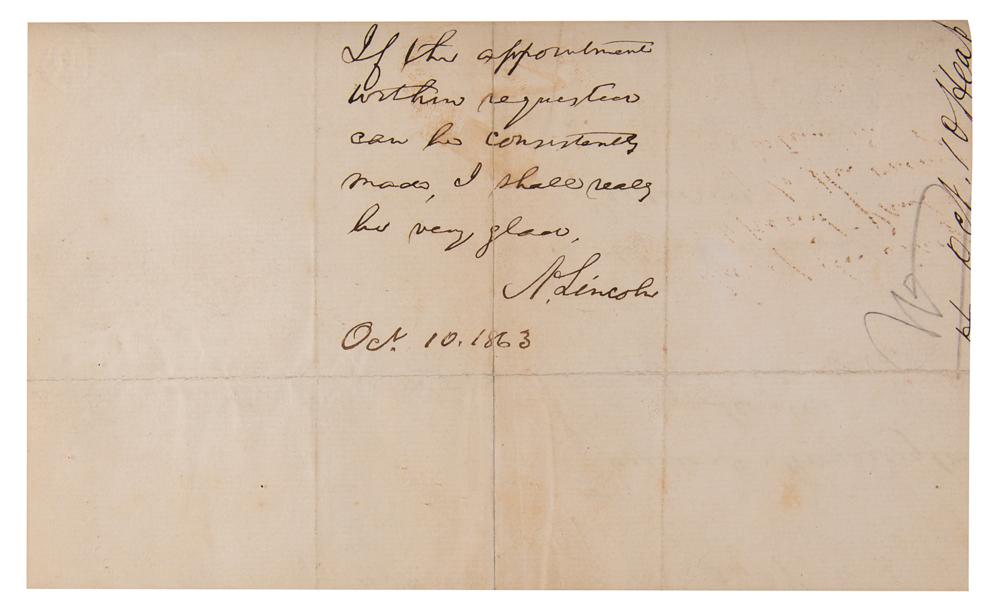 If the appointment
within requested
can be consistently
made, I shall really
be very glad,
A. Lincoln
Oct. 10. 1863
Oct. 10